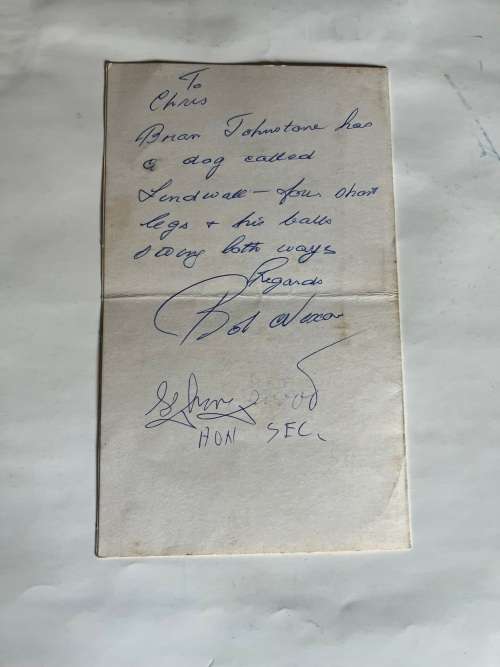 To
Chris
Brian Johnstone has
a dog called
Lindwall - four short
legs + his balls
swing both ways
Regards
Bob Nixon
HON SEC.